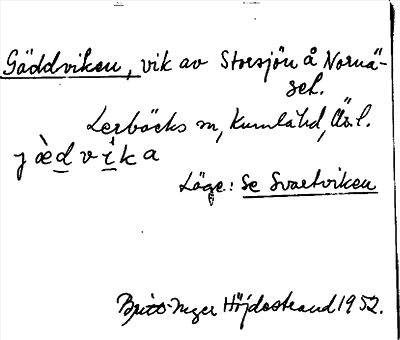 Gäddviken, vik av Storsjön å Nornä-
sel.
Lerbäcks sn, Kumla hd, Ör l.
jæ̀dvika
Läge: Se Svartviken
Britt-Inger Höjdestrand 1952.